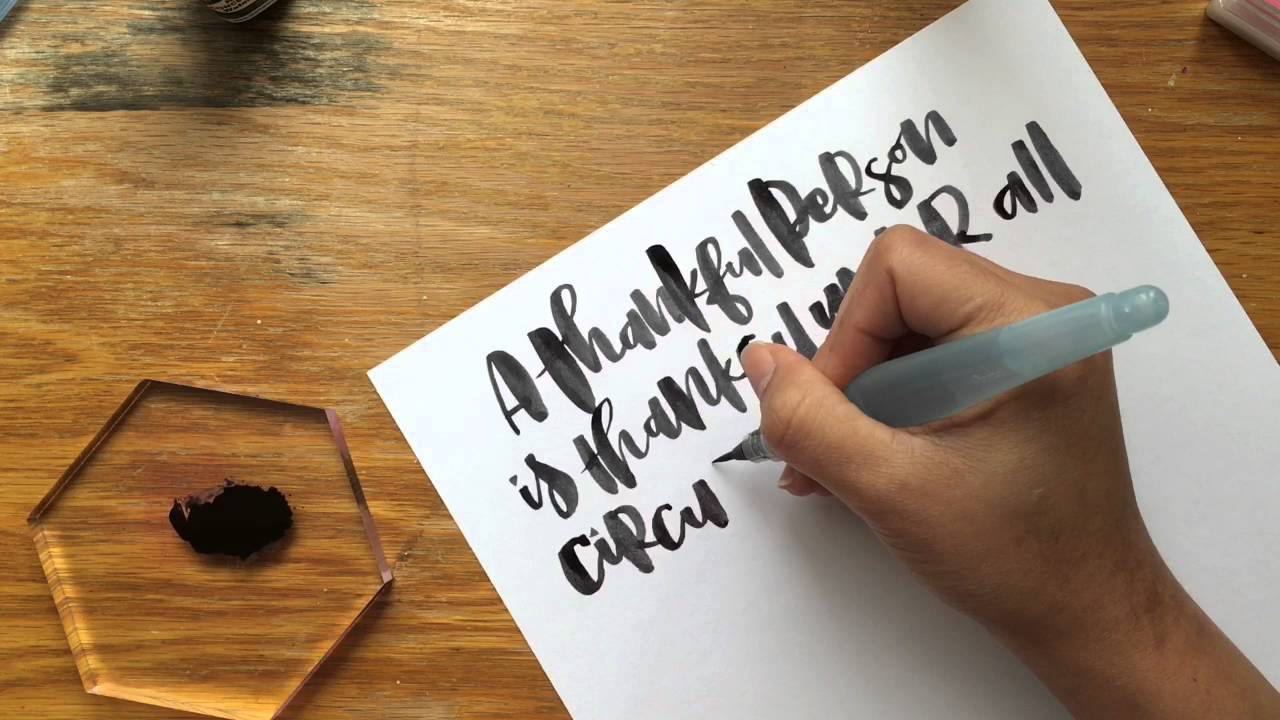 A thankful person
is thankful under all
circu